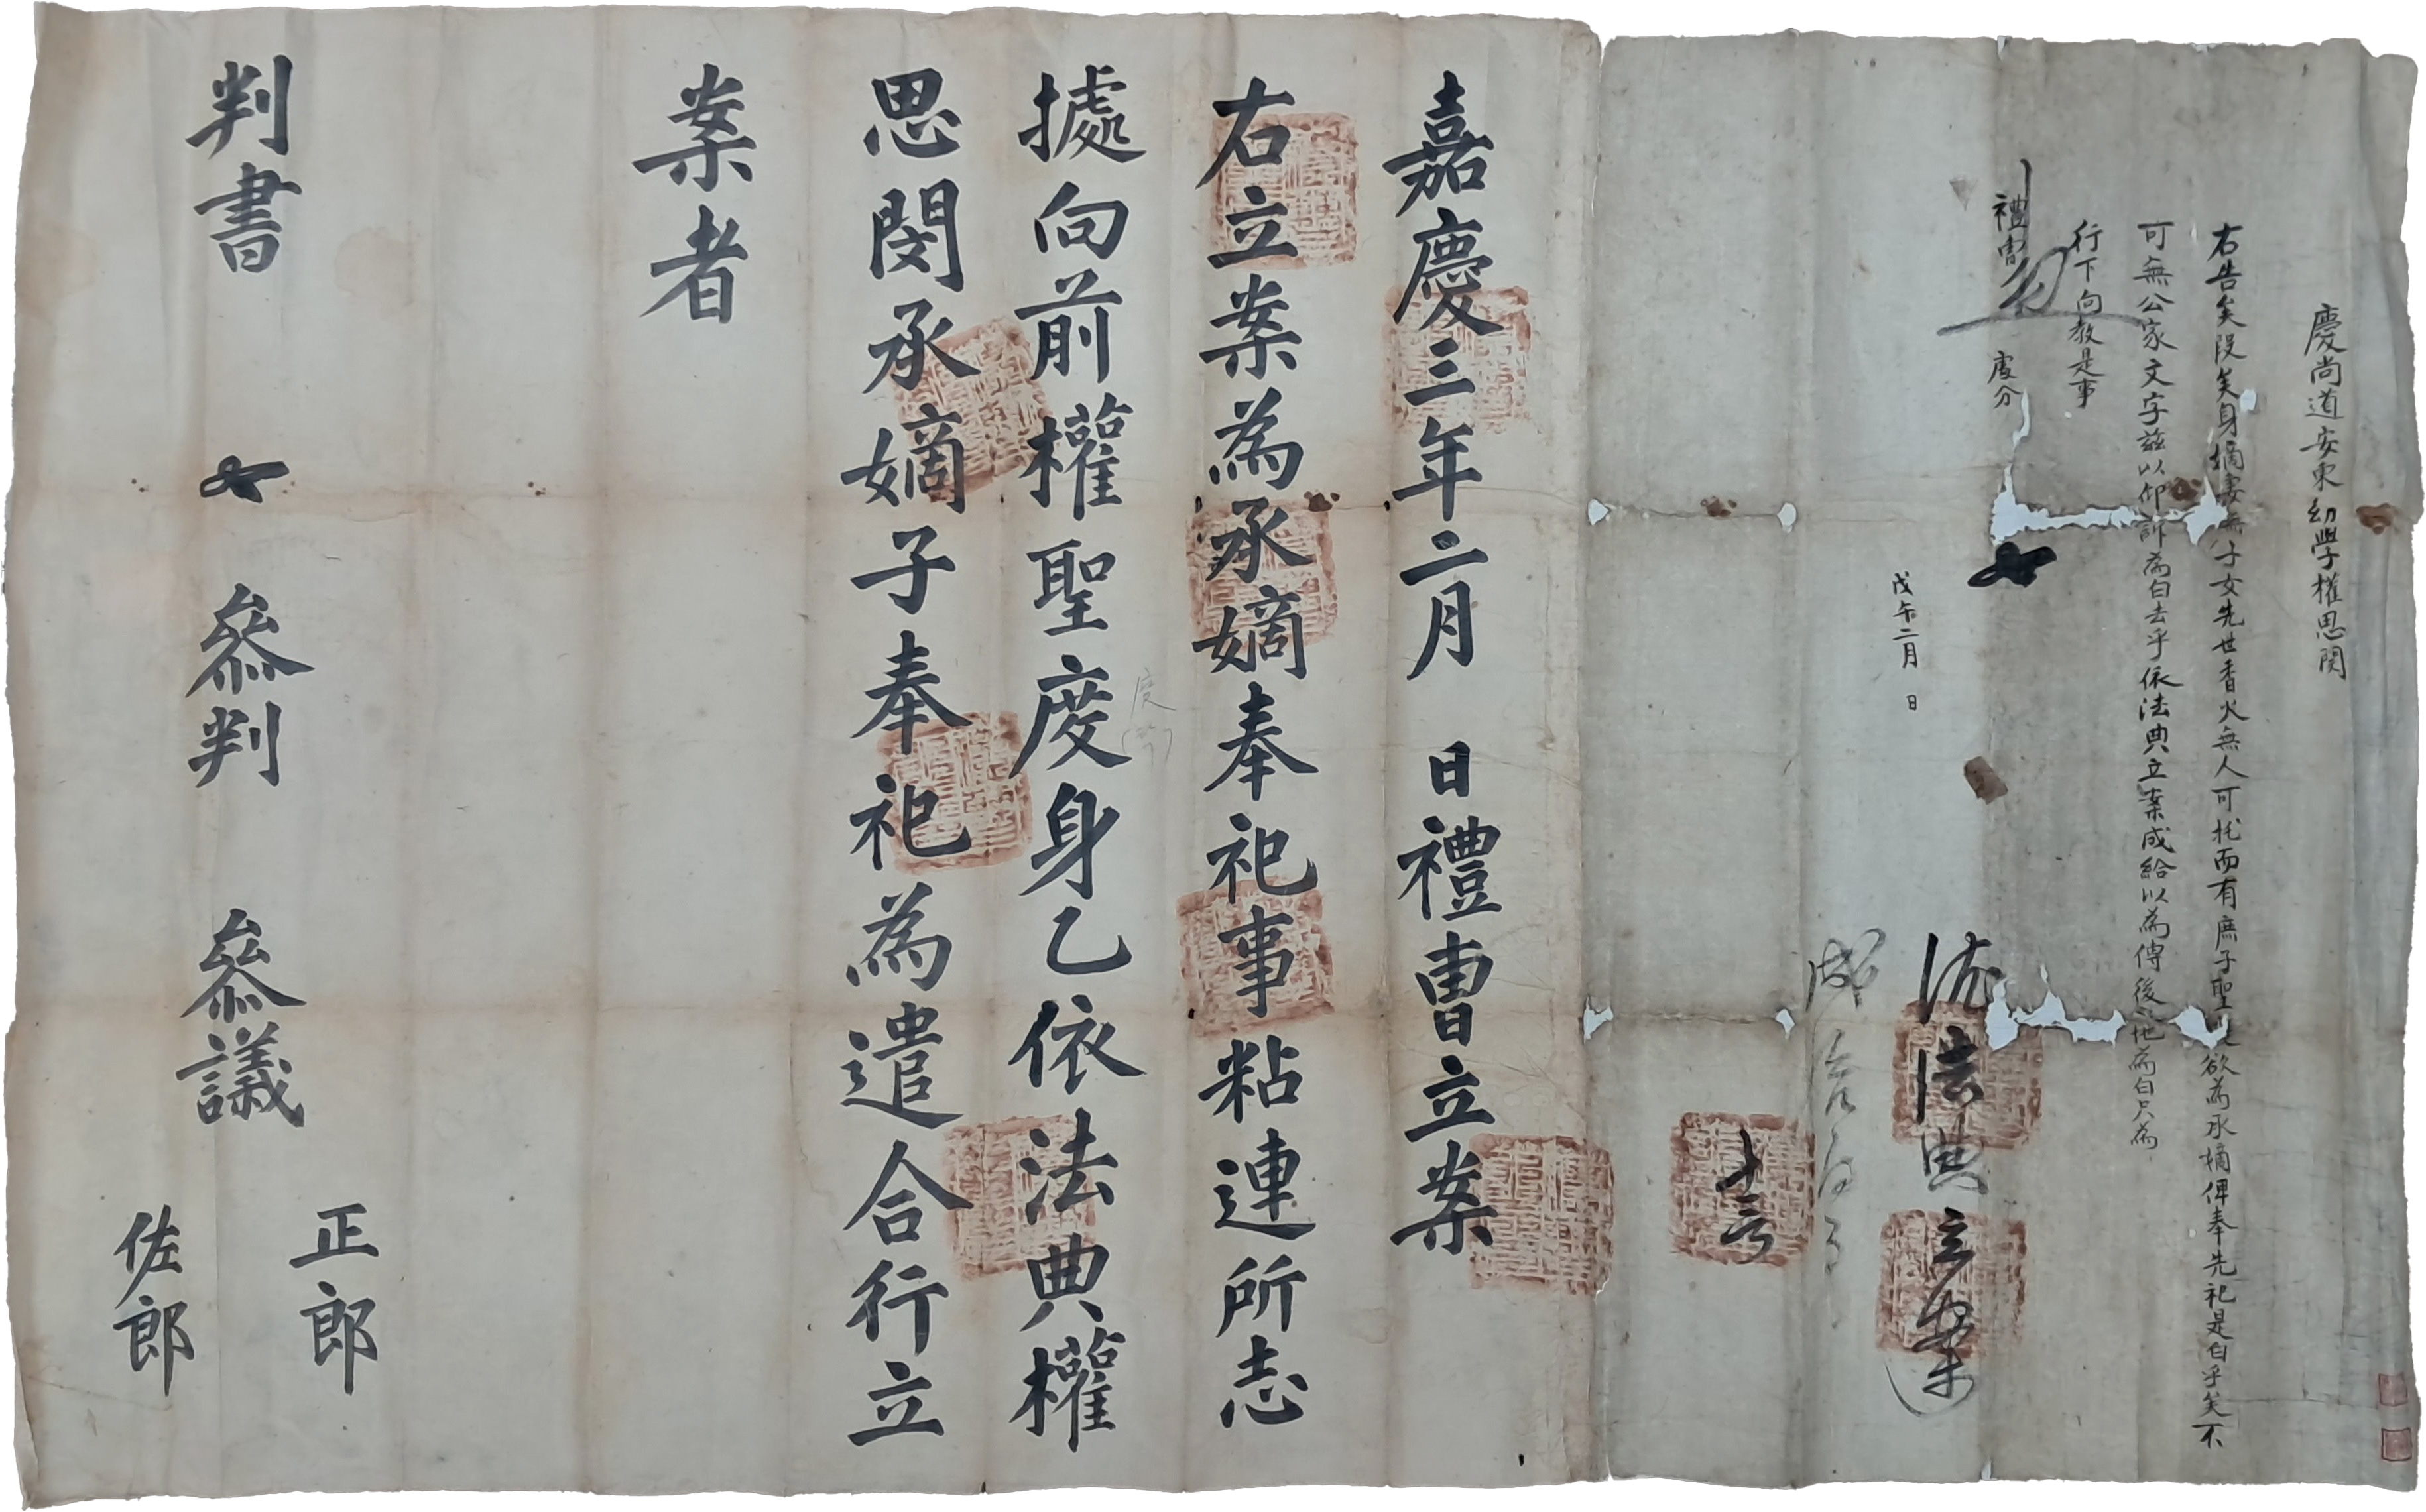 慶尚道安東幼學權思閔
右告矣段矣身嫡妻無子女先世香火無人可托而有庶子聖度欲爲承嫡俾奉先祀是白乎矣不
可無公家文字玆以仰訴爲白去乎依法典立案成給以爲傳後之地爲白只爲
行下向敎是事
禮曹 處分
戊午二月 日
依法典立案
成給向事
十六
嘉慶三年二月 日禮曹立案
右立案爲承嫡奉祀事粘連所志
據向前權聖度身乙依法典權
思閔承嫡子奉祀爲遣合行立
案者
度
判書 參判 參議 正郎
佐郎